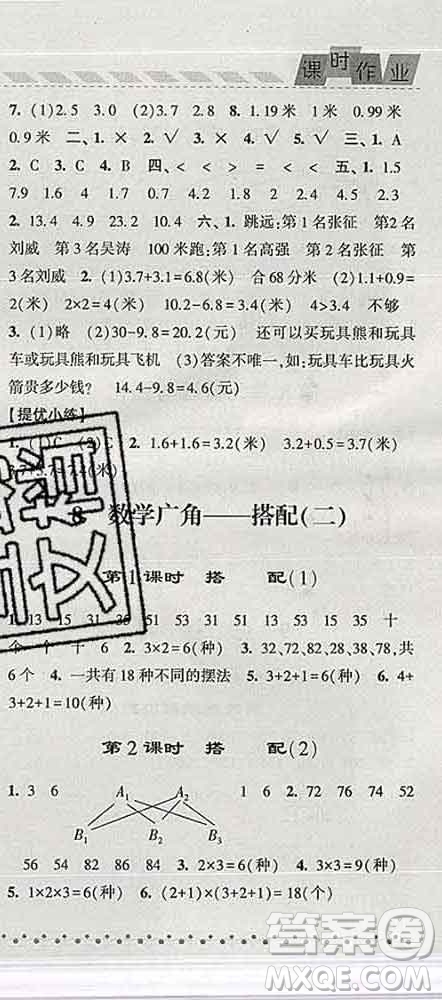 课时作业
7. (1)2.5 3.0 (2)3.7 2.8 8. 1.19米 1米 0.99米
0.9米 二、1. × 2. √ 3. × 4. √ 5. √ 三、1. A
2. C 3. C 4. B 四、< < > = < < 五、1. 1.5
7.9 1.6 4 1.7 0.7 4.2 5.4 4.5 2.3
2. 13.4 4.9 23.2 10.4 六、1. 跳远:第1名张征 第2名
刘威 第3名吴涛 100米跑:第1名高强 第2名张征 第
3名刘威 2. (1)3.7+3.1=6.8(米) 合68分米 (2)1.1+0.9=
2(米) 2×2=4(米) 10.2-6.8=3.4(米) 4>3.4 不够
3. (1)略 (2)30-9.8=20.2(元) 还可以买玩具熊和玩具
车或玩具熊和玩具飞机 (3)答案不唯一,如:玩具车比玩具火
箭贵多少钱? 14.4-9.8=4.6(元)
【提优小练】
1. (1)C (2)C 2. 1.6+1.6=3.2(米) 3.2+0.5=3.7(米)
8 数学广角——搭配(二)
第1课时 搭 配(1)
1. 13 15 31 35 51 53 13 31 51 53 15 35 十
个 个 十 6 2. 3×2=6(种) 3. 32,72,82,28,38,78,共
6个 4. 一共有18种不同的摆法 5. 3+2+1=6(种) 6. 4+
3+2+1=10(种)
第2课时 搭 配(2)
1. 3 6 A1 A2 1 6 2. 72 76 74 52
B1 B2 B3
56 54 82 86 84 3. 2×3=6(种) 4. 3×3=9(种)
5. 1×2×3=6(种) 6. (2+1)×(3+2+1)=18(个)
答案圈
MXQE.COM